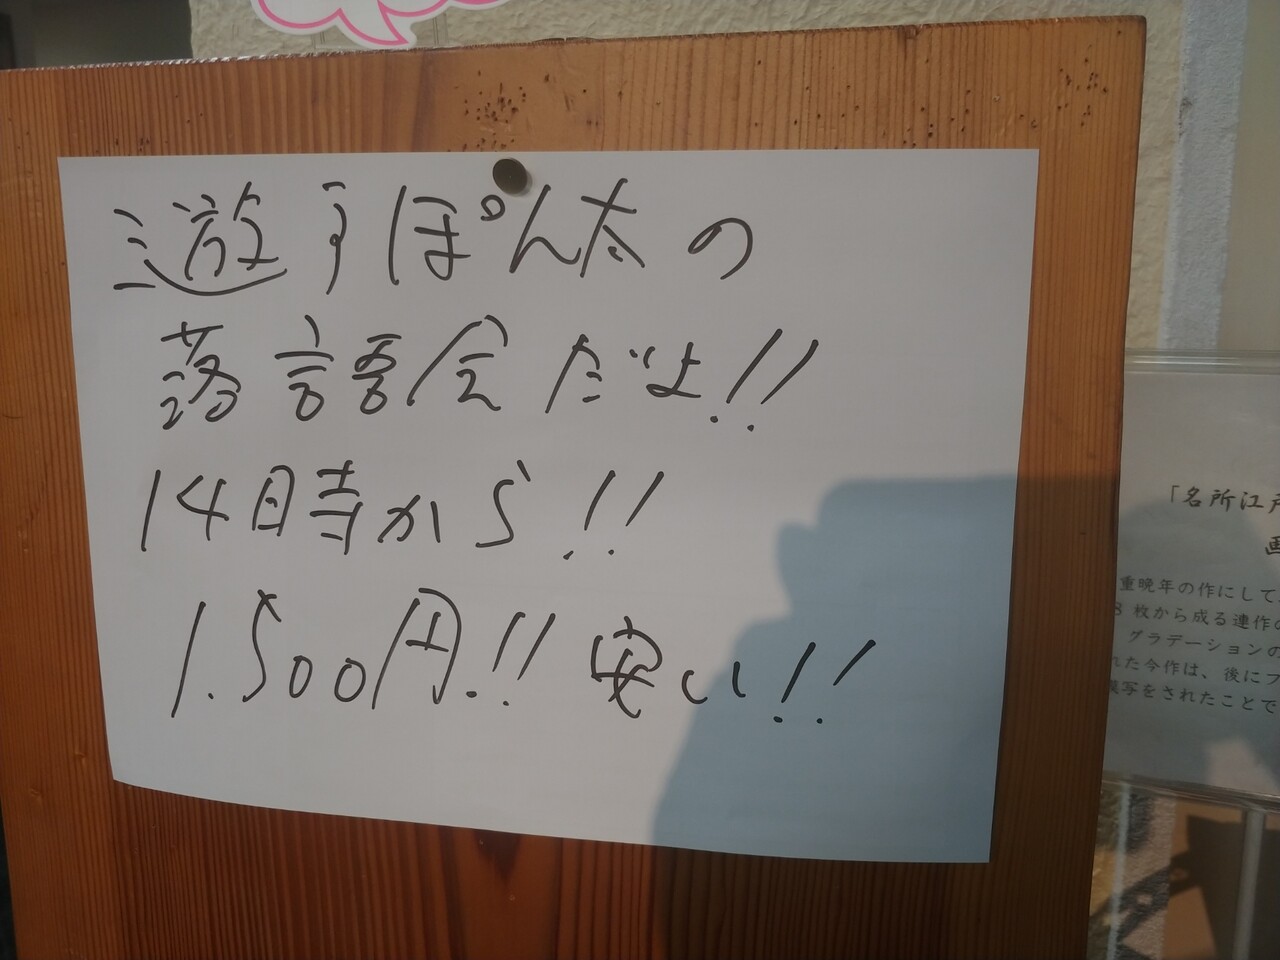 遊子ぽん太の
落語会だよ!!
14時から!!
1.500円!!安い!!
「名所江戸
重晩年の作にして
枚から成る連作の
グラデーションの
れた今作は、後にフ
写をされたことで